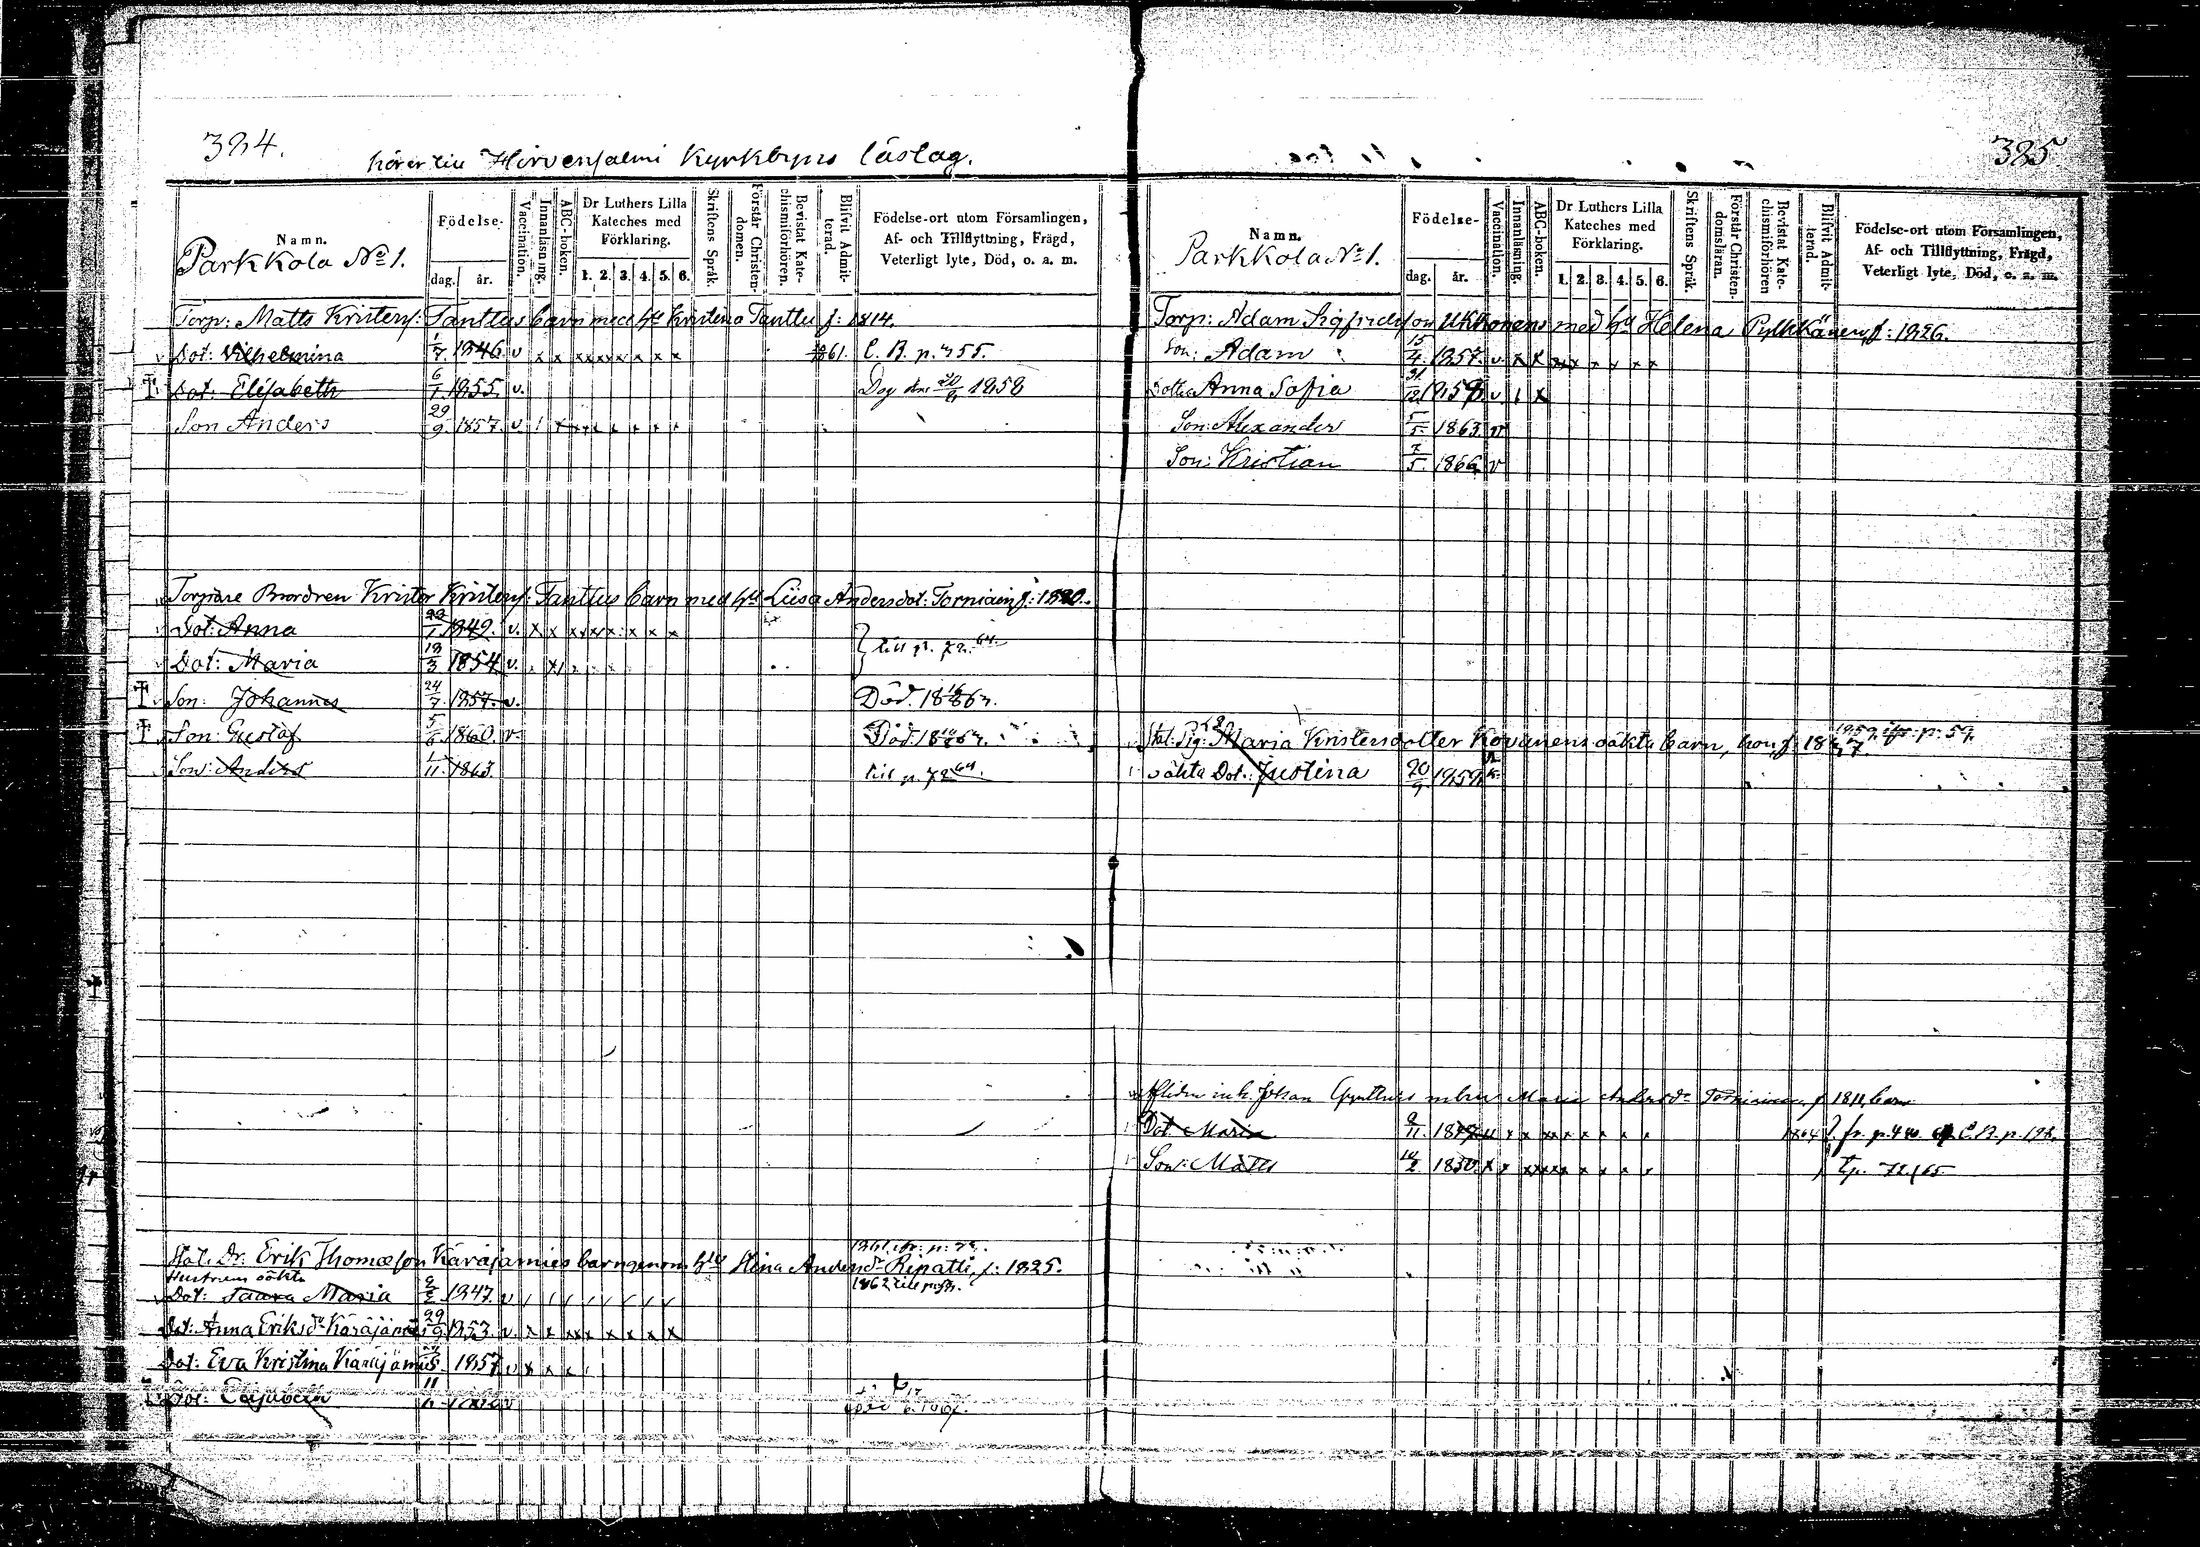 384.
hörer till Hirvensalmi Kyrkbyns läslag.
Namn.
Parkkola No 1.
Födelse-
dag. år.
Vaccination.
Innanläsning.
ABC-boken.
Dr Luthers Lilla Kateches med Förklaring.
1. 2. 3. 4. 5. 6.
Skriftens Språk.
Förstår Christendomen.
Bevistat Katechismiförhören.
Blifvit Admitterad.
Födelse-ort utom Församlingen,
Af- och Tillflyttning, Frägd,
Veterligt lyte, Död, o. a. m.
Torp: Matts Kristers: Tanttus barn med hu Kristina Tanttu f: 1814.
Dot: Vilhelmina 1/7 1846. v x x x x x x x x x 1861. C. B. p. 455.
Dot: Elisabeth 6/1 1855. v. Dog den 1858
Son Anders 29/9 1857. v.
Torpare Brodren Krister Kristers: Tanttus barn med hu Liisa Andersdot: Torniain f: 1820.
Dot: Anna 1849. v. x x x x x x x x
Dot: Maria 18/3 1854. v. till p. 72. 64.
Son: Johannes 24/7 1857. v. Död.
Son: Gustaf 5/6 1860. v. Död.
Son: Anders 1/11 1863. till p. 72 64.
1861 ifr: p: 72.
Stat. Dr. Erik Thomæson Käräjämies barn genom hu Stina Andersdr Ripatti f: 1825.
Hustruns oäkta 1862 till p.
Dot: Saara Maria 1847. v
Dot: Anna Eriksdr Käräjämies 29/9 1853. v. x x x x x x x x
Dot: Eva Kristina Käräjämies 1857 v x x x
Dot: Elisabeth
385
Namn.
Parkkola No 1.
Födelse-
dag. år.
Vaccination.
Innanläsning.
ABC-boken.
Dr Luthers Lilla Kateches med Förklaring.
1. 2. 3. 4. 5. 6.
Skriftens Språk.
Förstår Christendomsläran.
Bevistat Katechismiförhören
Blifvit Admitterad.
Födelse-ort utom Församlingen,
Af- och Tillflyttning, Frägd,
Veterligt lyte, Död, o. a. m.
Torp: Adam Sigfridsson Ukkonens med hu Helena Pylkkänen f: 1826.
Son: Adam 15/4 1857. v. x x x x x x x x
Dotter Anna Sofia 31/12 1858 v. x
Son: Alexander 5/5 1863. v
Son: Kristian 7/5 1866 v
1859 ifr: p: 59.
Stat. Pig: Maria Kristersdotter Kovanens oäkta barn, hon f: 18
oäkta Dot: Justina 20/9 1859.
Afliden Johan Maria Andersdr Torniainen f. 1811, barn
Dot Maria 1864 fr. p. C. B. p. 198.
Son: Matts 1850. x x x x x x x x tp. 72/65